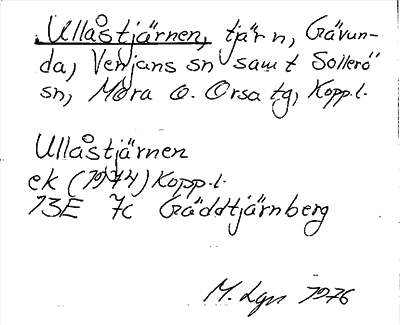 Ullåstjärnen, tjärn, Gävun-
da, Venjans sn samt Sollerö
sn, Mora o. Orsa tg, Kopp.l.
Ullåstjärnen
ek (1974) Kopp.l.
13E 7c Gäddtjärnberg
M. Lgn 1976